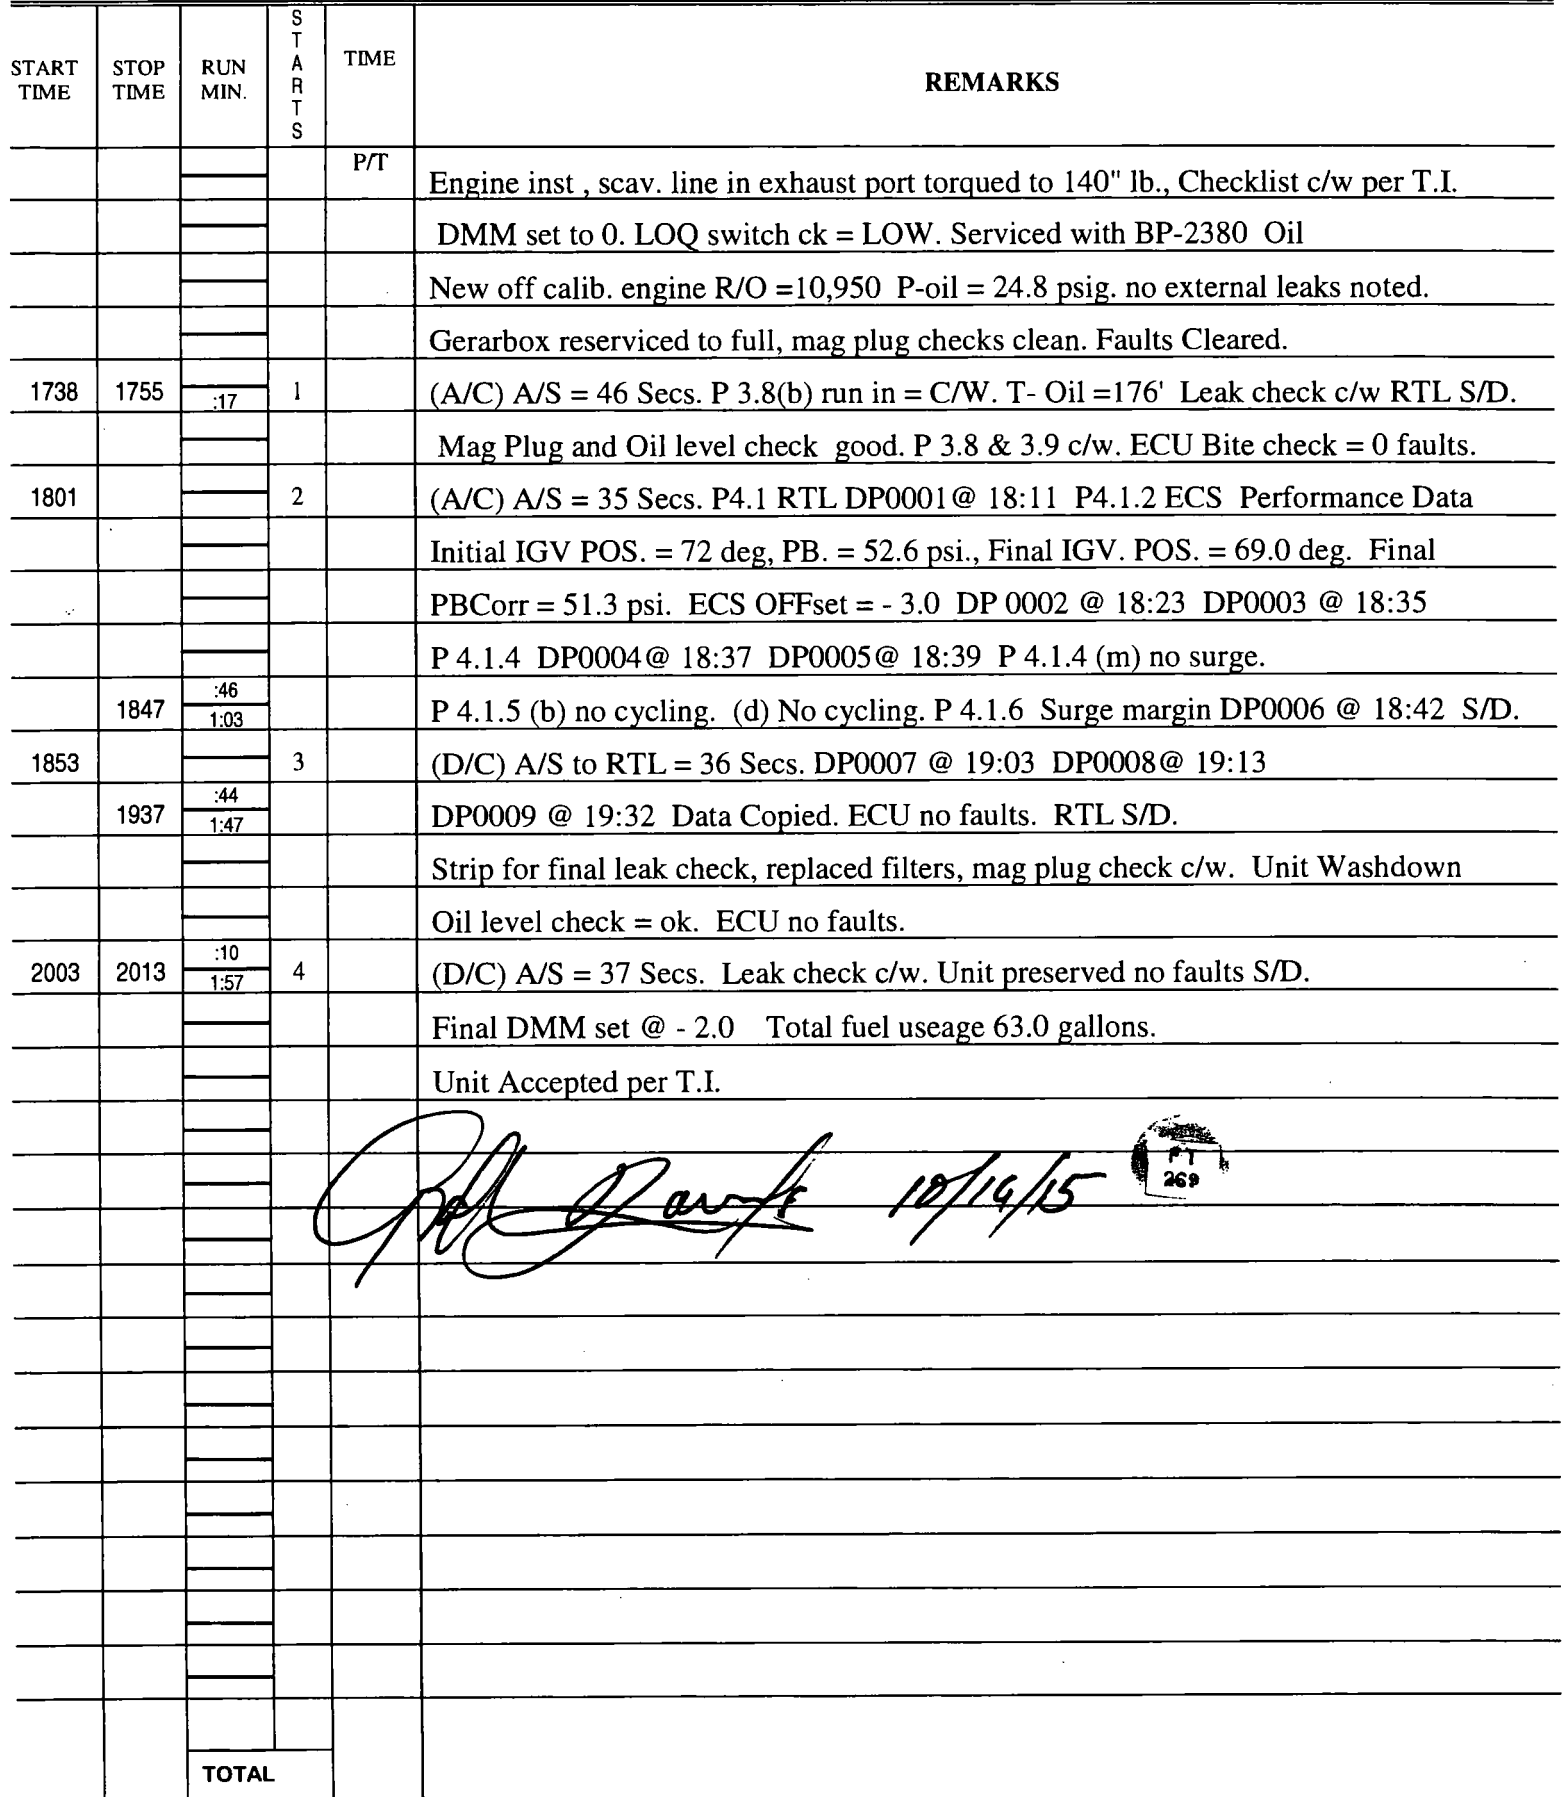 START TIME STOP TIME RUN MIN. STARTS TIME REMARKS
P/T
Engine inst , scav. line in exhaust port torqued to 140" lb., Checklist c/w per T.I.
DMM set to 0. LOQ switch ck = LOW. Serviced with BP-2380 Oil
New off calib. engine R/O =10,950 P-oil = 24.8 psig. no external leaks noted.
Gerarbox reserviced to full, mag plug checks clean. Faults Cleared.
1738 1755 :17 1 (A/C) A/S = 46 Secs. P 3.8(b) run in = C/W. T- Oil =176' Leak check c/w RTL S/D.
Mag Plug and Oil level check good. P 3.8 & 3.9 c/w. ECU Bite check = 0 faults.
1801 2 (A/C) A/S = 35 Secs. P4.1 RTL DP0001@ 18:11 P4.1.2 ECS Performance Data
Initial IGV POS. = 72 deg, PB. = 52.6 psi., Final IGV. POS. = 69.0 deg. Final
PBCorr = 51.3 psi. ECS OFFset = - 3.0 DP 0002 @ 18:23 DP0003 @ 18:35
P 4.1.4 DP0004@ 18:37 DP0005@ 18:39 P 4.1.4 (m) no surge.
:46
1847 1:03 P 4.1.5 (b) no cycling. (d) No cycling. P 4.1.6 Surge margin DP0006 @ 18:42 S/D.
1853 3 (D/C) A/S to RTL = 36 Secs. DP0007 @ 19:03 DP0008@ 19:13
:44
1937 1:47 DP0009 @ 19:32 Data Copied. ECU no faults. RTL S/D.
Strip for final leak check, replaced filters, mag plug check c/w. Unit Washdown
Oil level check = ok. ECU no faults.
:10
2003 2013 1:57 4 (D/C) A/S = 37 Secs. Leak check c/w. Unit preserved no faults S/D.
Final DMM set @ - 2.0 Total fuel useage 63.0 gallons.
Unit Accepted per T.I.
PT
269
TOTAL